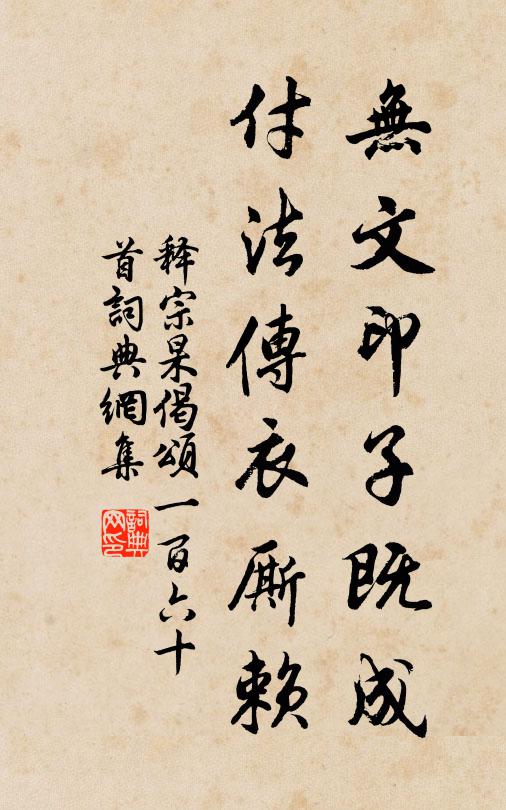 無文印子既成
付法傳衣厮賴
释宗杲偈頌一百六十
首詞典網集
詞典
网印